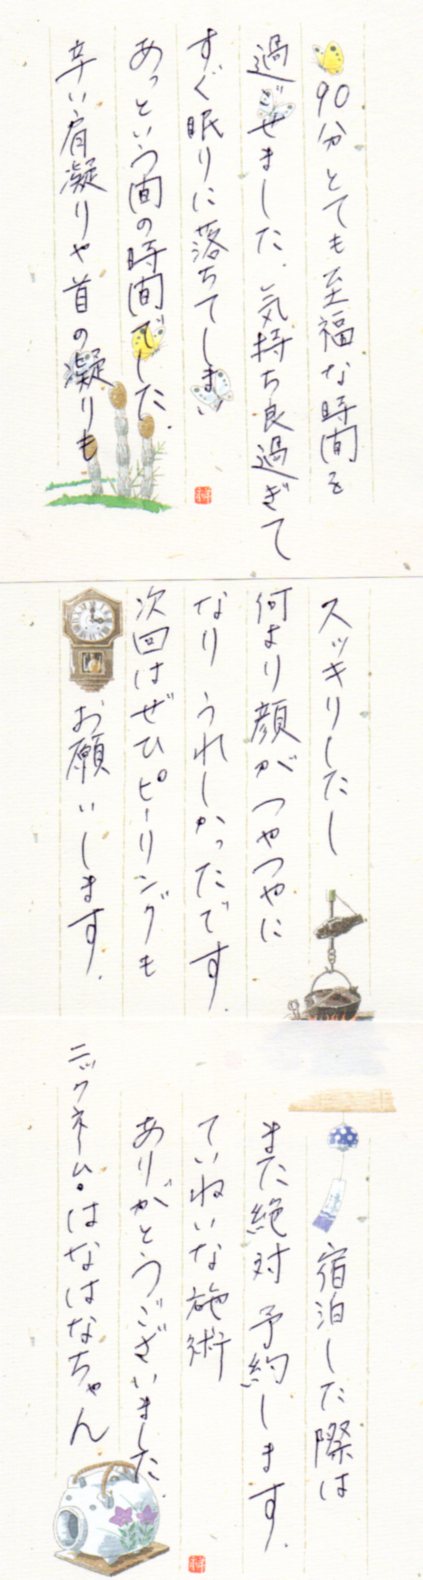 90分とても至福な時間を
過ごせました。気持ち良過ぎて
すぐ眠りに落ちてしまい
あっという間の時間でした。
辛い肩凝りや首の凝りも
スッキリしたし
何より顔がつやつやに
なり うれしかったです。
次回はぜひピーリングも
お願いします。
宿泊した際は
また絶対 予約します。
ていねいな施術
ありがとうございました。
ニックネーム・はなはなちゃん